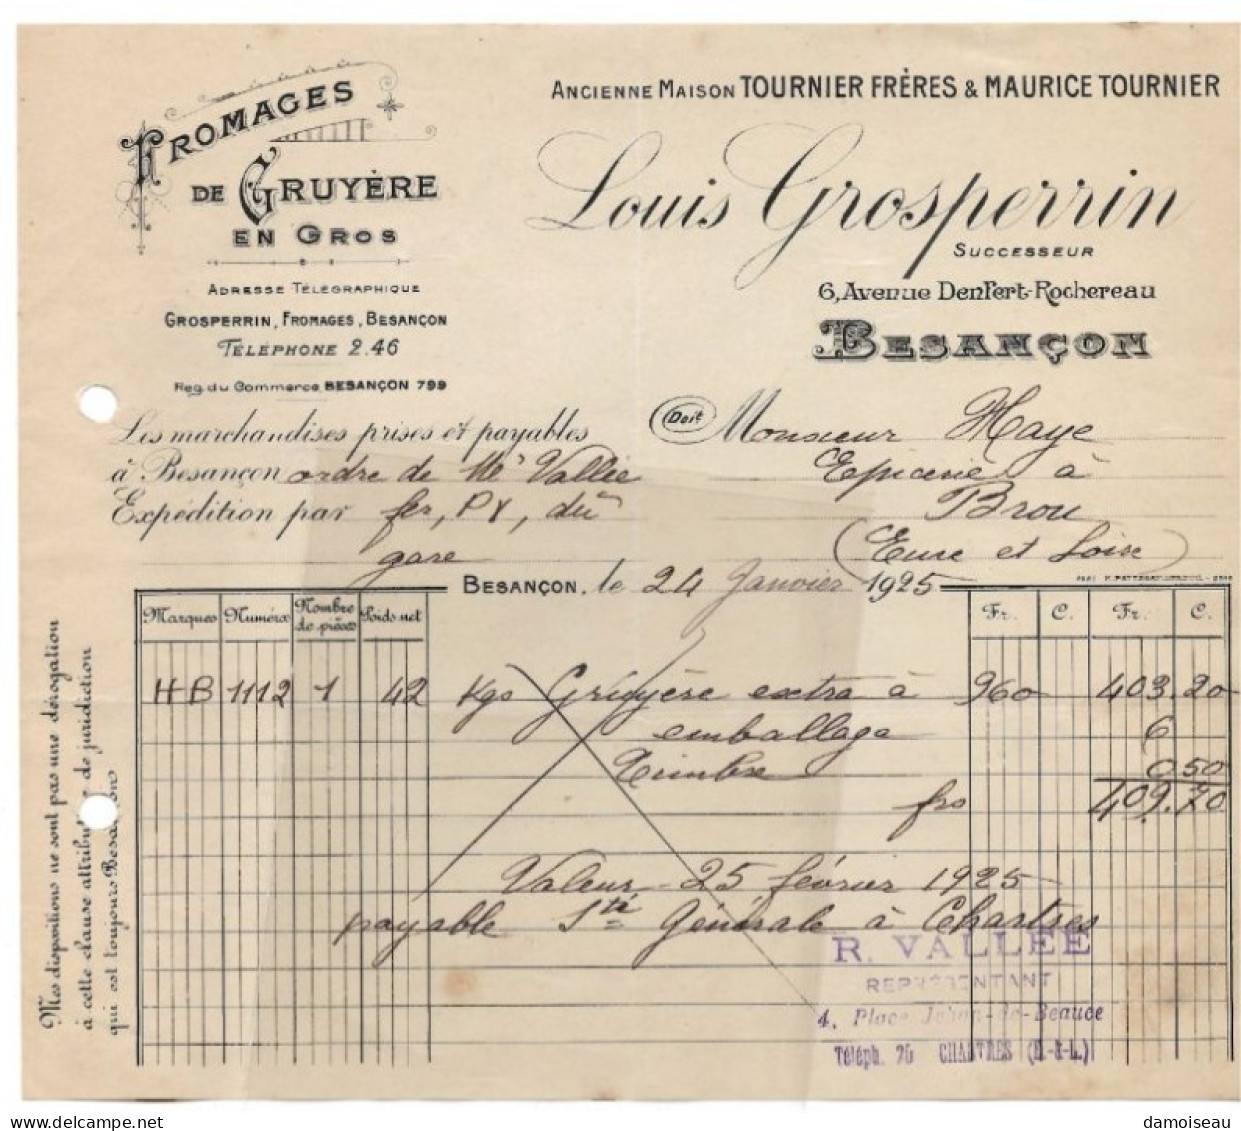 FROMAGES
DE GRUYÈRE
EN GROS
ADRESSE TÉLÉGRAPHIQUE
GROSPERRIN, FROMAGES, BESANÇON
TÉLÉPHONE 2.46
Reg. du Commerce BESANÇON 799
ANCIENNE MAISON TOURNIER FRÈRES & MAURICE TOURNIER
Louis Grosperrin
SUCCESSEUR
6, Avenue Denfert-Rochereau
BESANÇON
Les marchandises prises et payables
à Besançon ordre de Mr Vallée
Expédition par fer, PV, dû
gare
Doit Monsieur Haye
Epicerie à
Brou
(Eure et Loire)
BESANÇON, le 24 Janvier 1925
Marques Numéros Nombre de pièces Poids net Fr. C. Fr. C.
HB 1112 1 42 Kgs Gruyère extra à 960 403.20
emballage 6
Timbre 0.50
frs 409.70
Valeur 25 février 1925
payable Sté Générale à Chartres
R. VALLÉE
REPRÉSENTANT
4, Place Jehan-de-Beauce
Téléph. 76 CHARTRES (E.-&-L.)
Mes dispositions ne sont pas une dérogation
à cette clause attributive de juridiction
qui est toujours Besançon
damoiseau